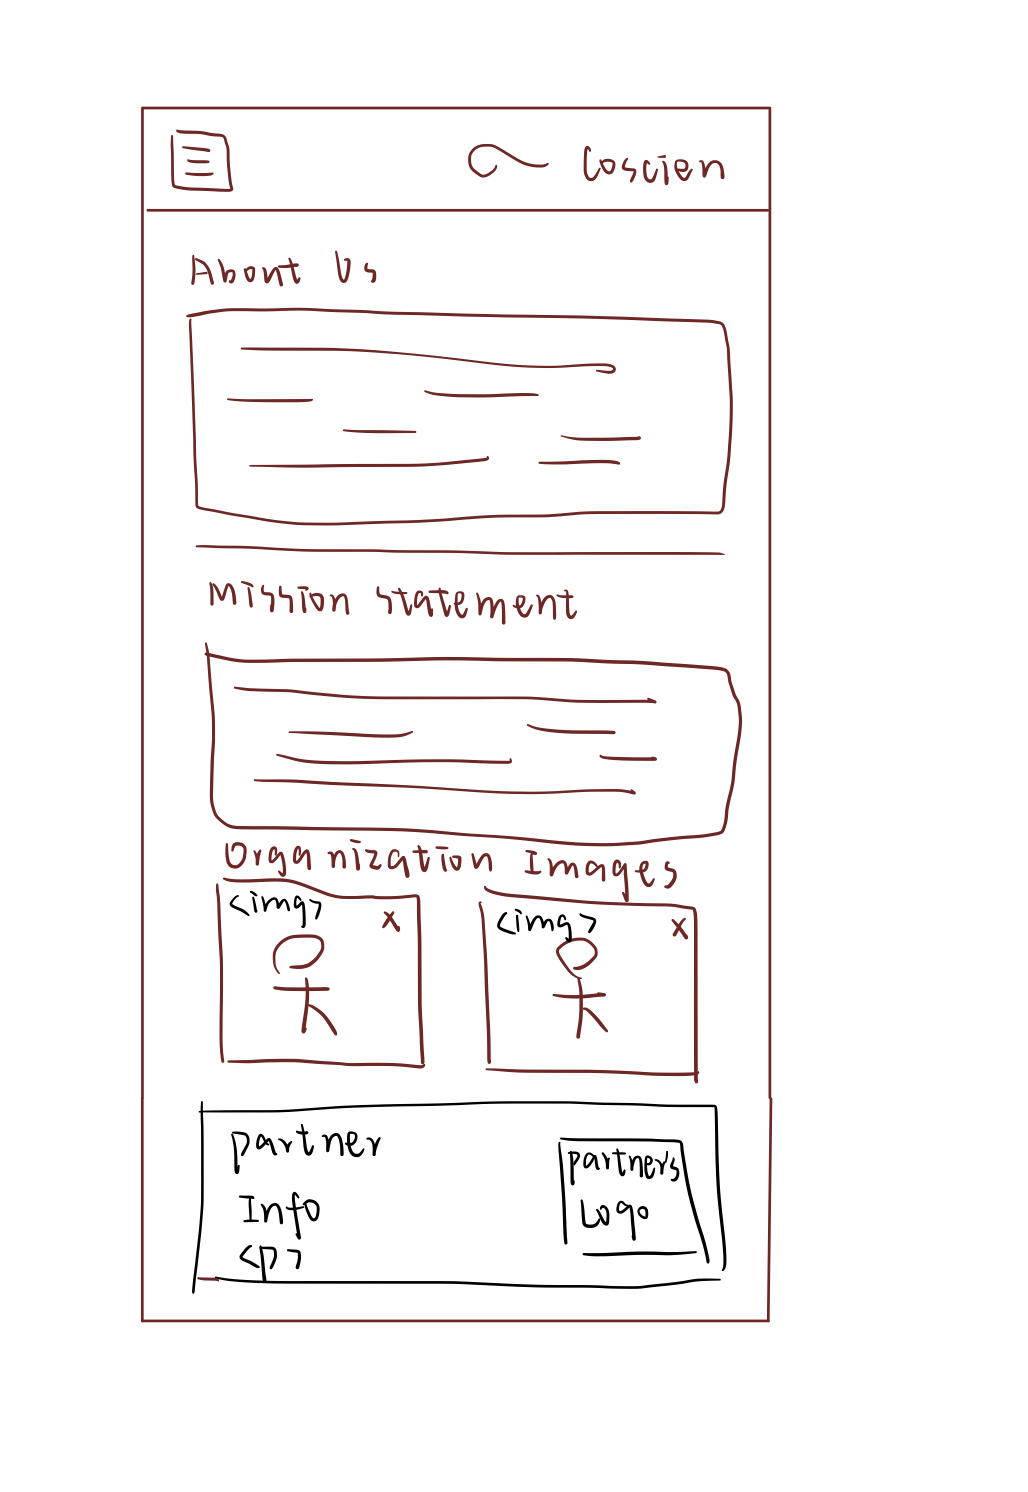 Coscien
About Us
Mission statement
Organization Images
<img> x
<img> x
partner
Info
<p>
partners
Logo